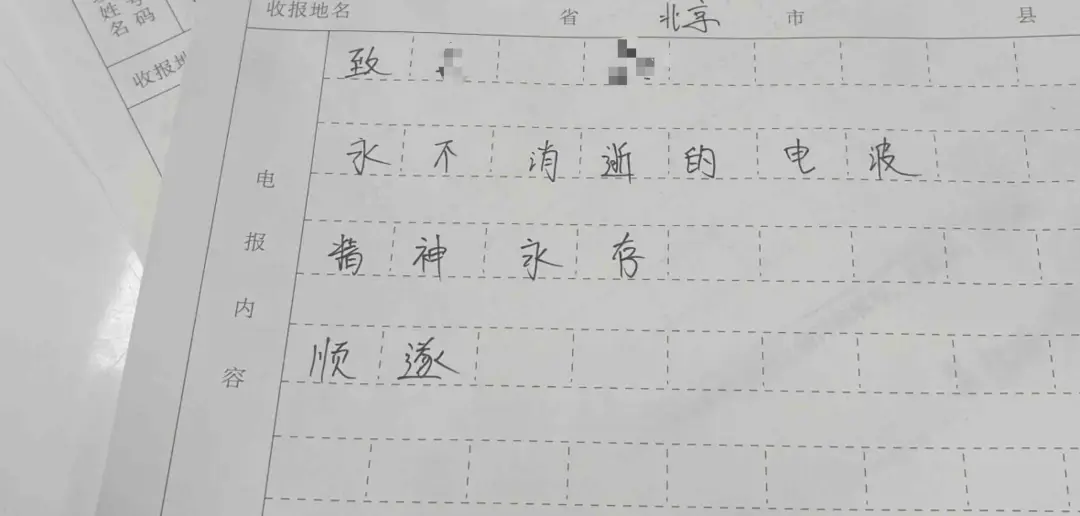 号码
姓名
收报地
收报地名 省 北京 市 县
致
永不消逝的电波
精神永存
顺遂
电报内容